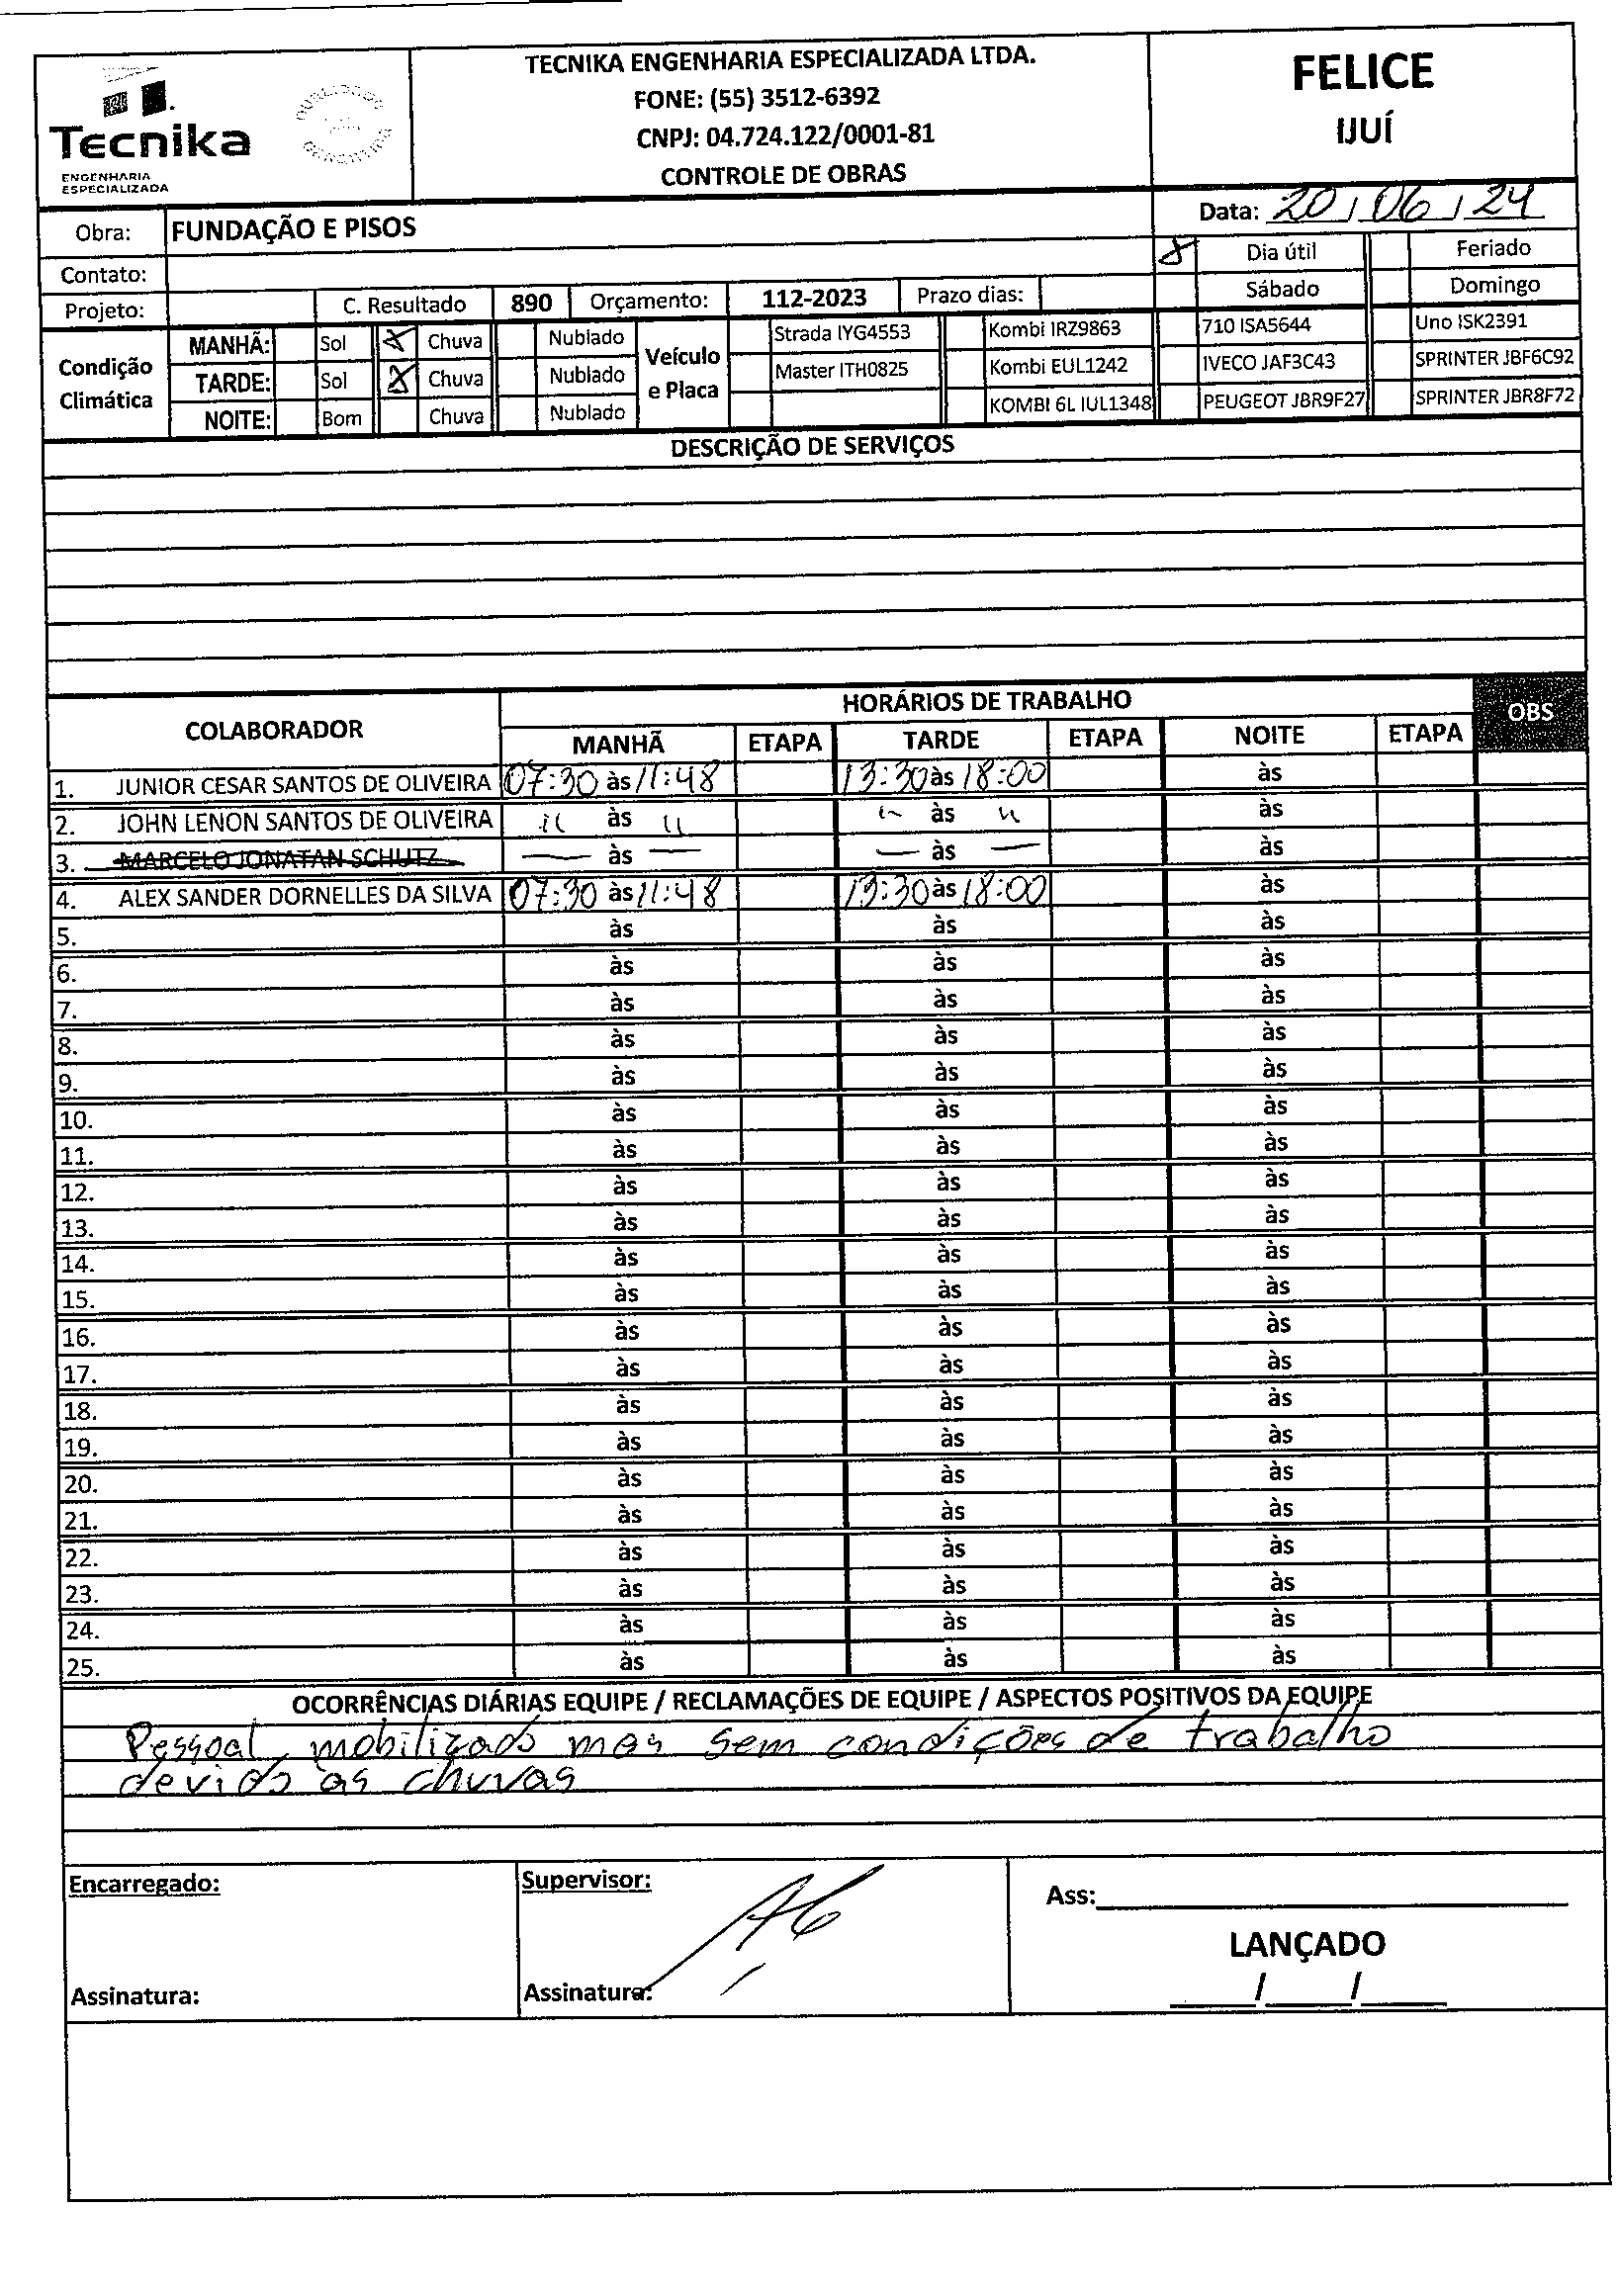 TECNIKA ENGENHARIA ESPECIALIZADA LTDA.
FONE: (55) 3512-6392
CNPJ: 04.724.122/0001-81
CONTROLE DE OBRAS
Tecnika
ENGENHARIA
ESPECIALIZADA
FELICE
IJUÍ
Data: 20/06/24
Obra: FUNDAÇÃO E PISOS
X Dia útil Feriado
Contato:
Sábado Domingo
Projeto: C. Resultado 890 Orçamento: 112-2023 Prazo dias:
Condição Climática
MANHÃ: Sol X Chuva Nublado
TARDE: Sol X Chuva Nublado
NOITE: Bom Chuva Nublado
Veículo e Placa
Strada IYG4553 Kombi IRZ9863 710 ISA5644 Uno ISK2391
Master ITH0825 Kombi EUL1242 IVECO JAF3C43 SPRINTER JBF6C92
KOMBI 6L IUL1348 PEUGEOT JBR9F27 SPRINTER JBR8F72
DESCRIÇÃO DE SERVIÇOS
COLABORADOR HORÁRIOS DE TRABALHO OBS
MANHÃ ETAPA TARDE ETAPA NOITE ETAPA
1. JUNIOR CESAR SANTOS DE OLIVEIRA 07:30 às 11:48 13:30 às 18:00 às
2. JOHN LENON SANTOS DE OLIVEIRA " às " " às " às
3. MARCELO JONATAN SCHUTZ — às — — às — às
4. ALEX SANDER DORNELLES DA SILVA 07:30 às 11:48 13:30 às 18:00 às
5. às às às
6. às às às
7. às às às
8. às às às
9. às às às
10. às às às
11. às às às
12. às às às
13. às às às
14. às às às
15. às às às
16. às às às
17. às às às
18. às às às
19. às às às
20. às às às
21. às às às
22. às às às
23. às às às
24. às às às
25. às às às
OCORRÊNCIAS DIÁRIAS EQUIPE / RECLAMAÇÕES DE EQUIPE / ASPECTOS POSITIVOS DA EQUIPE
Pessoal mobilizado mas sem condições de trabalho
devido as chuvas
Encarregado: Supervisor: Ass:
LANÇADO
Assinatura: Assinatura: / /